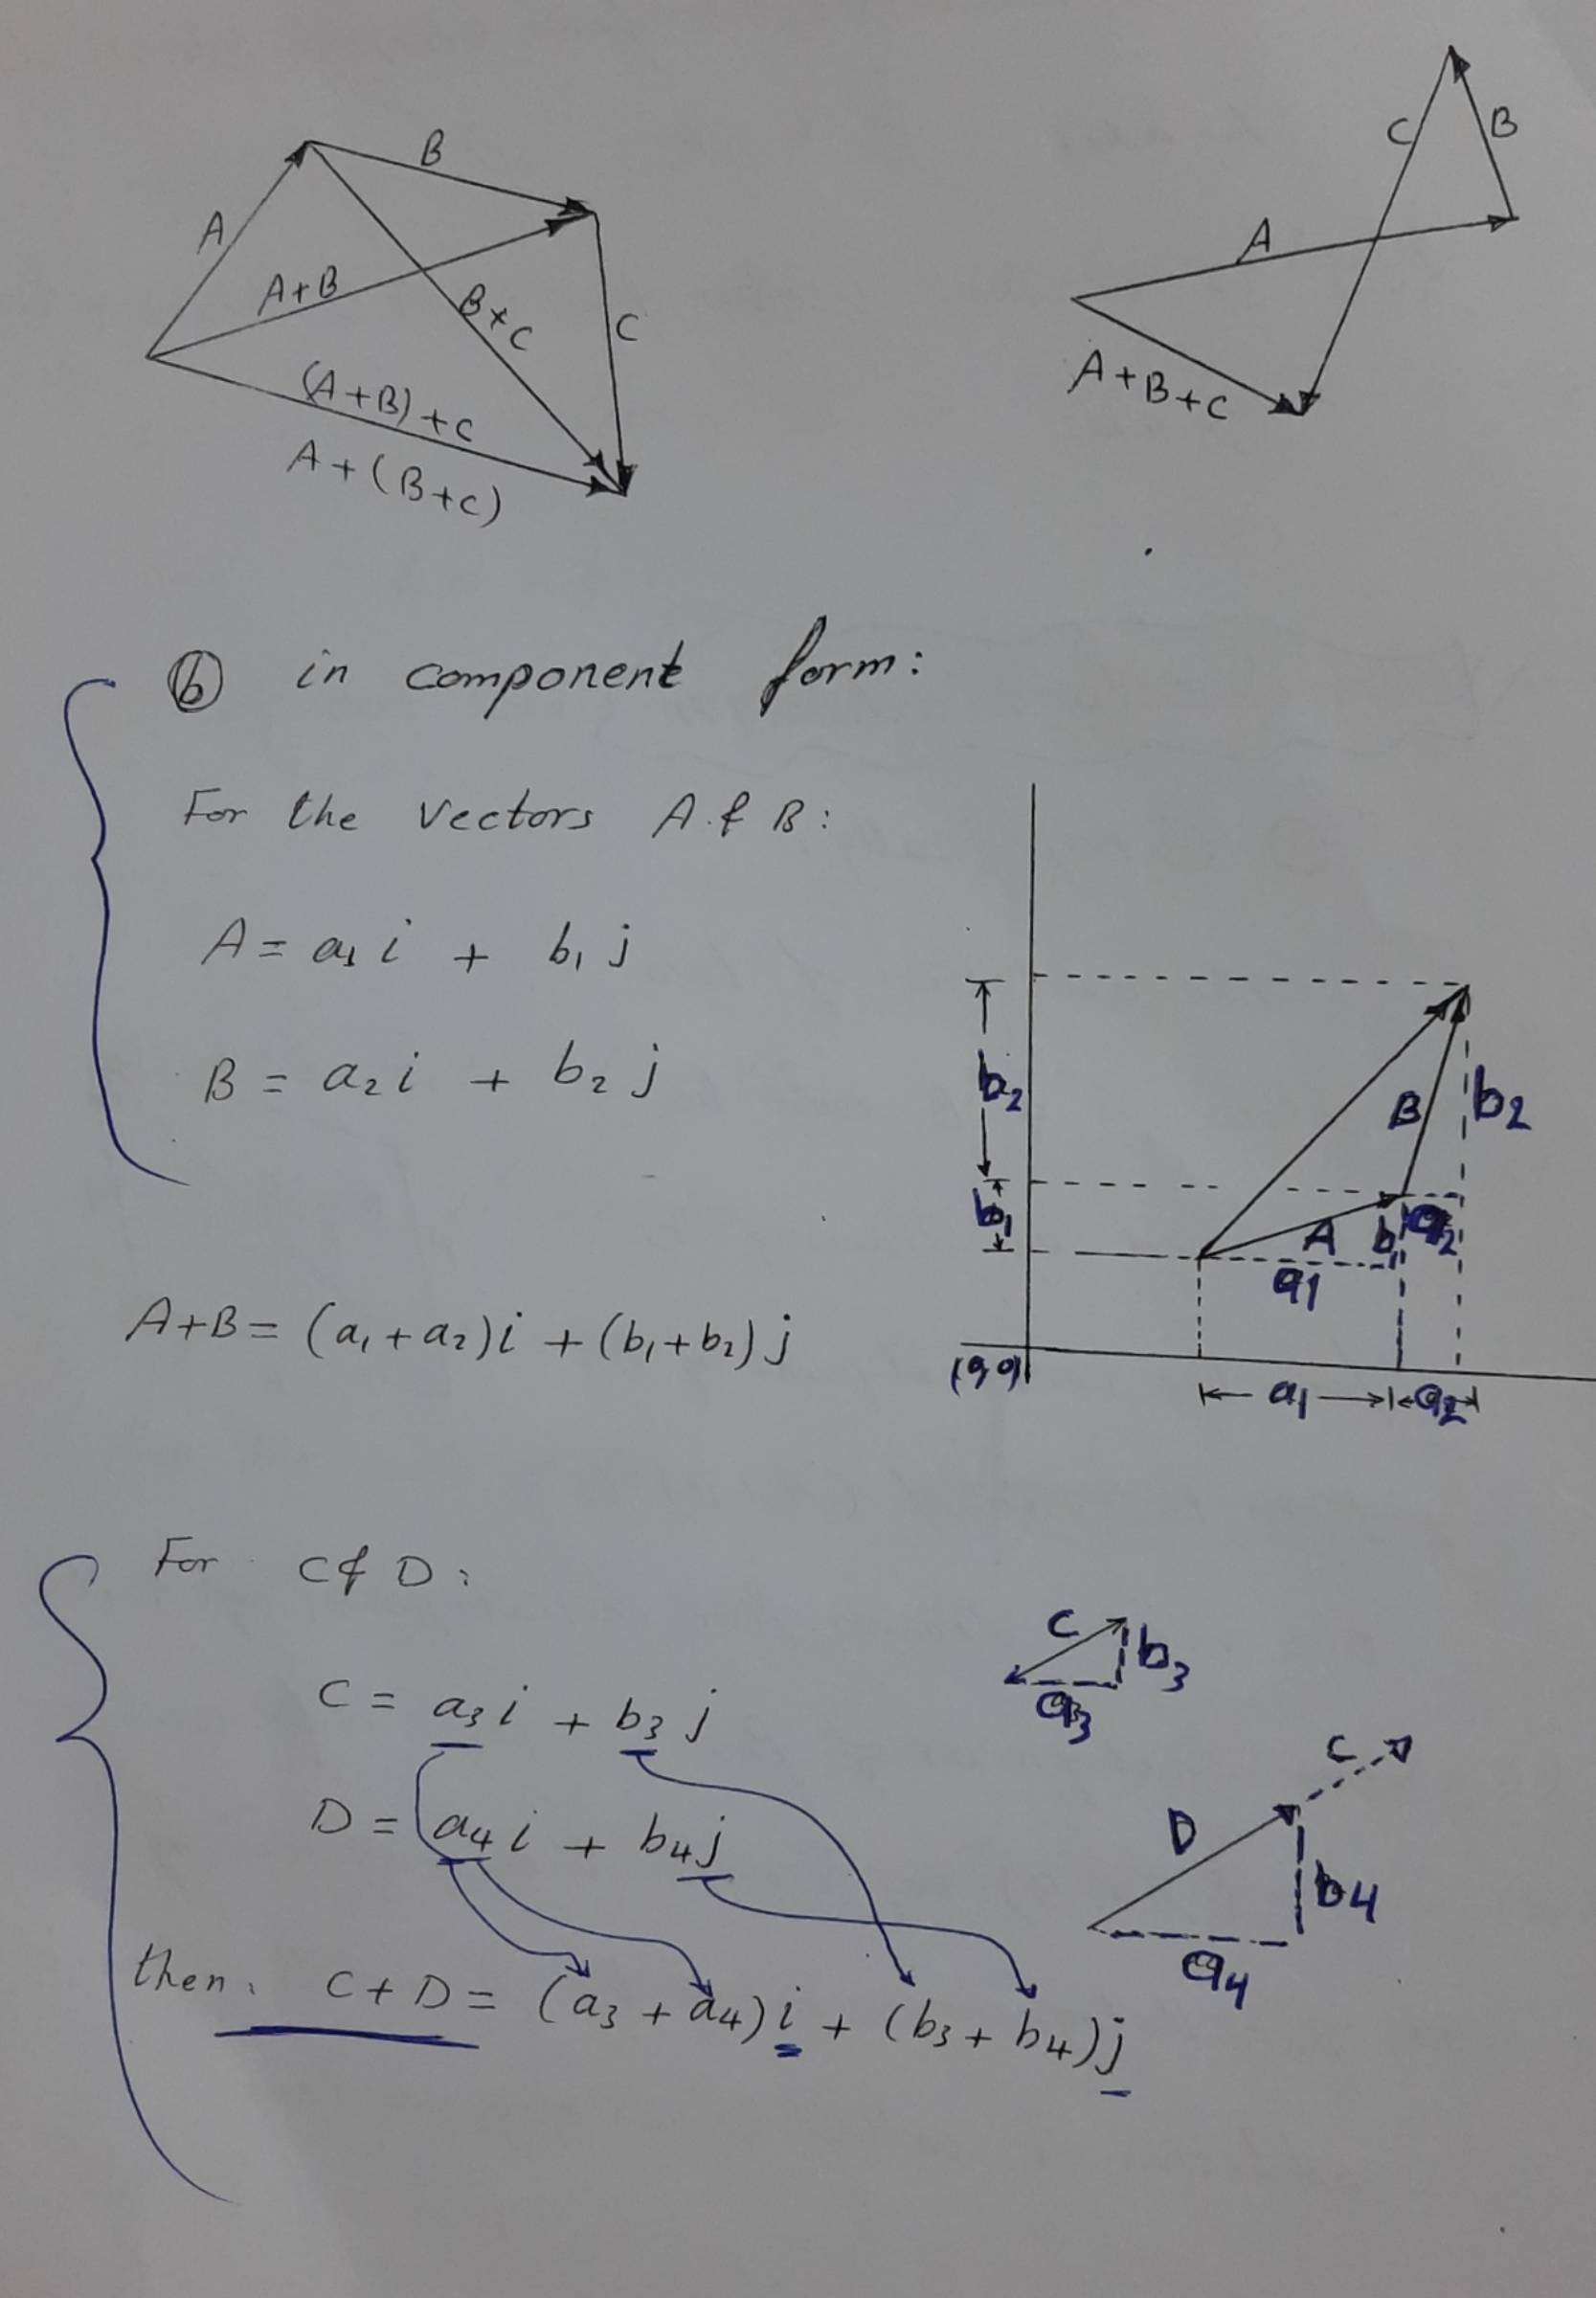 B
A
A+B
B+C
C
(A+B)+C
A+(B+C)
C
B
A
A+B+C
ⓑ in component form:
For the vectors A & B:
A = a₁ i + b₁ j
B = a₂ i + b₂ j
A+B = (a₁+a₂)i + (b₁+b₂)j
b₂
B
b₂
b₁
A
b₁
a₂
a₁
(0,0)
a₁
a₂
For C & D:
C = a₃ i + b₃ j
D = a₄ i + b₄ j
then: C+D = (a₃ + a₄) i + (b₃ + b₄) j
C
b₃
a₃
C
D
b₄
a₄